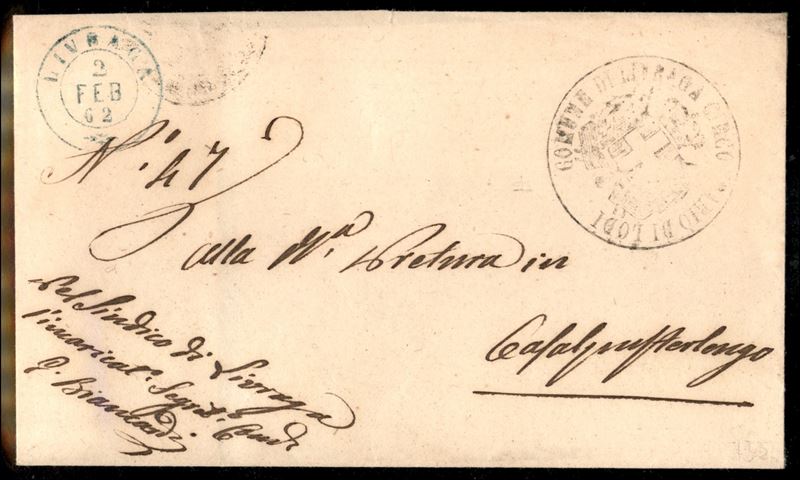 LIVRAGA
2
FEB
62
COMUNE DI LIVRAGA CIRCONDARIO DI LODI
N.° 47
Alla R.a Pretura in
Casalpusterlengo
Pel Sindico di Livraga
l'incaricat.° Segret.°
G. Biancardi
135